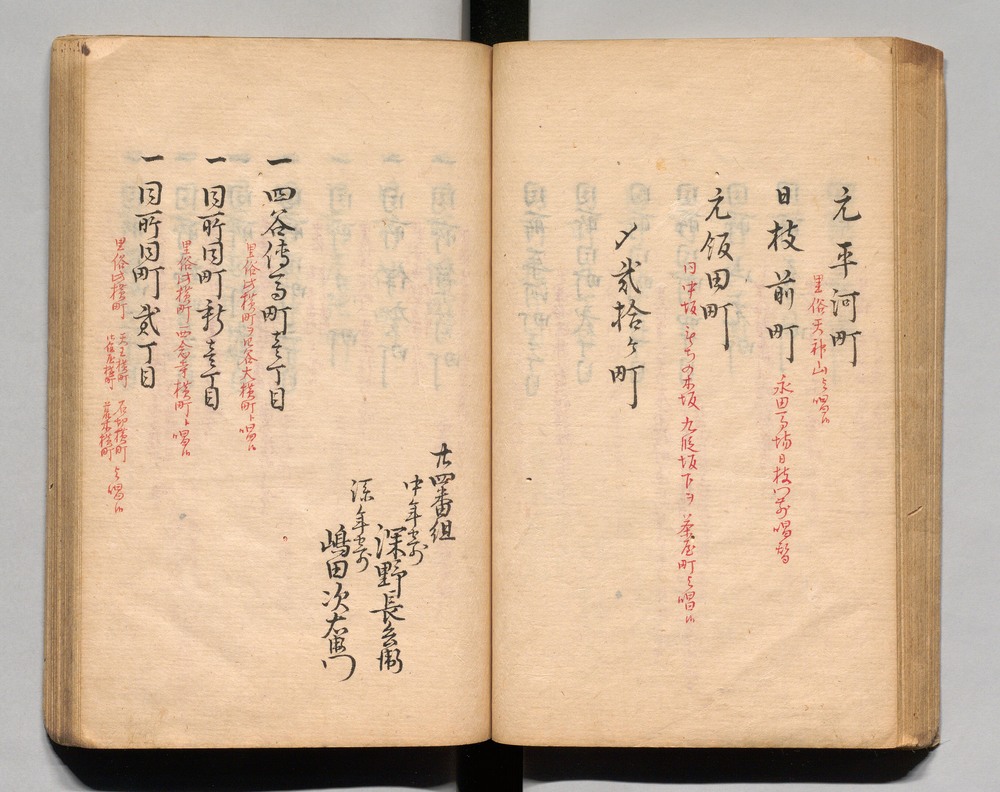 元平河町
里俗天神山与唱候
日枝前町
永田馬場日枝門前唱替
元飯田町
同中坂 もちの木坂 九段坂下ヲ 薬屋町与唱候
〆弐拾ヶ町
廿四番組
中年寄
深野長兵衛
添年寄
嶋田次右衛門
一 四谷傳馬町壱丁目
里俗此横町ヲ四谷大横町ト唱候
一 同所同町新壱丁目
里俗此横町西念寺横町ト唱候
一 同所同町弐丁目
里俗此横町 天王横町 石切横町 与唱候